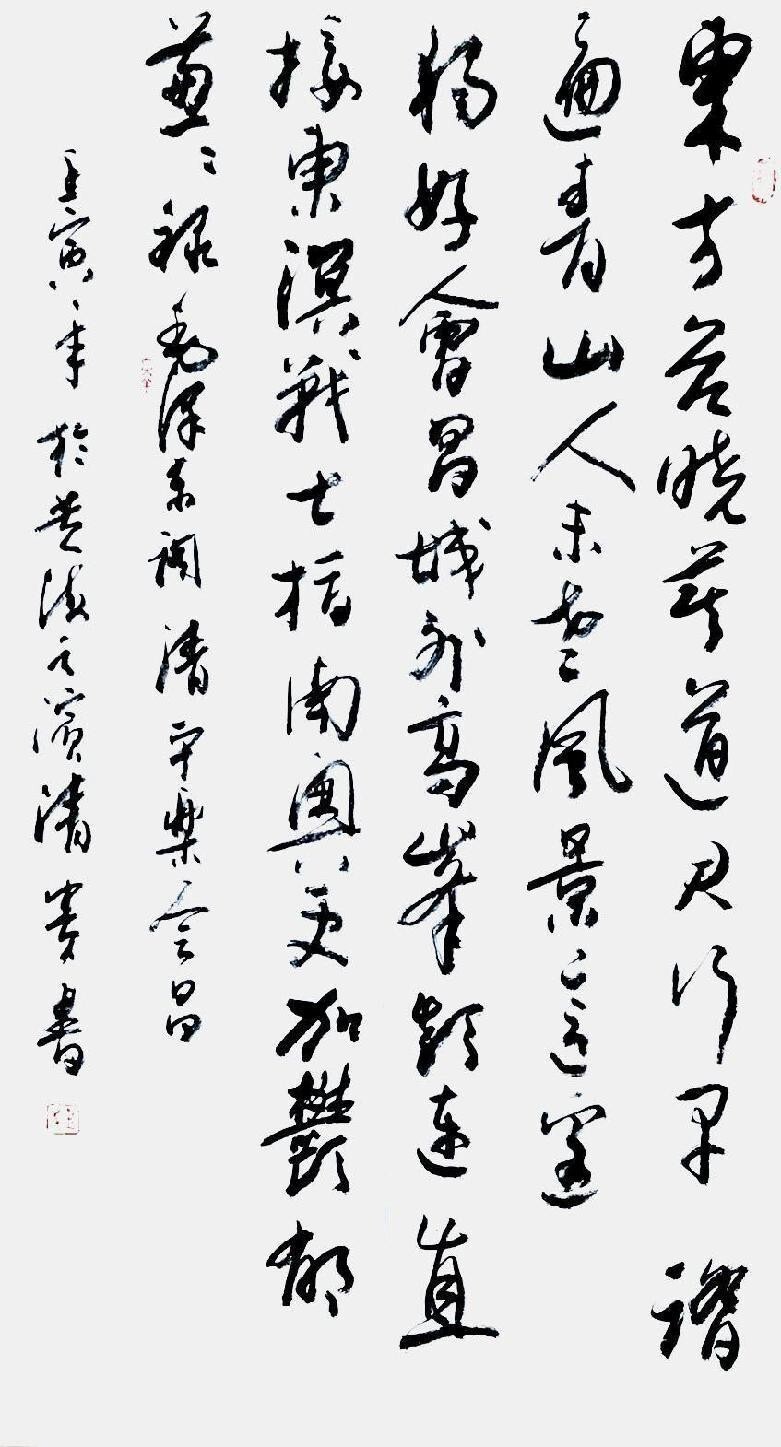 東方欲晓莫道君行早踏
遍青山人未老風景這邊
獨好會昌城外高峯顛連直
接東溟戰士指南粤更加鬱郁
葱々録毛澤東詞清平樂会昌
壬寅年於黄海之濱清贵書